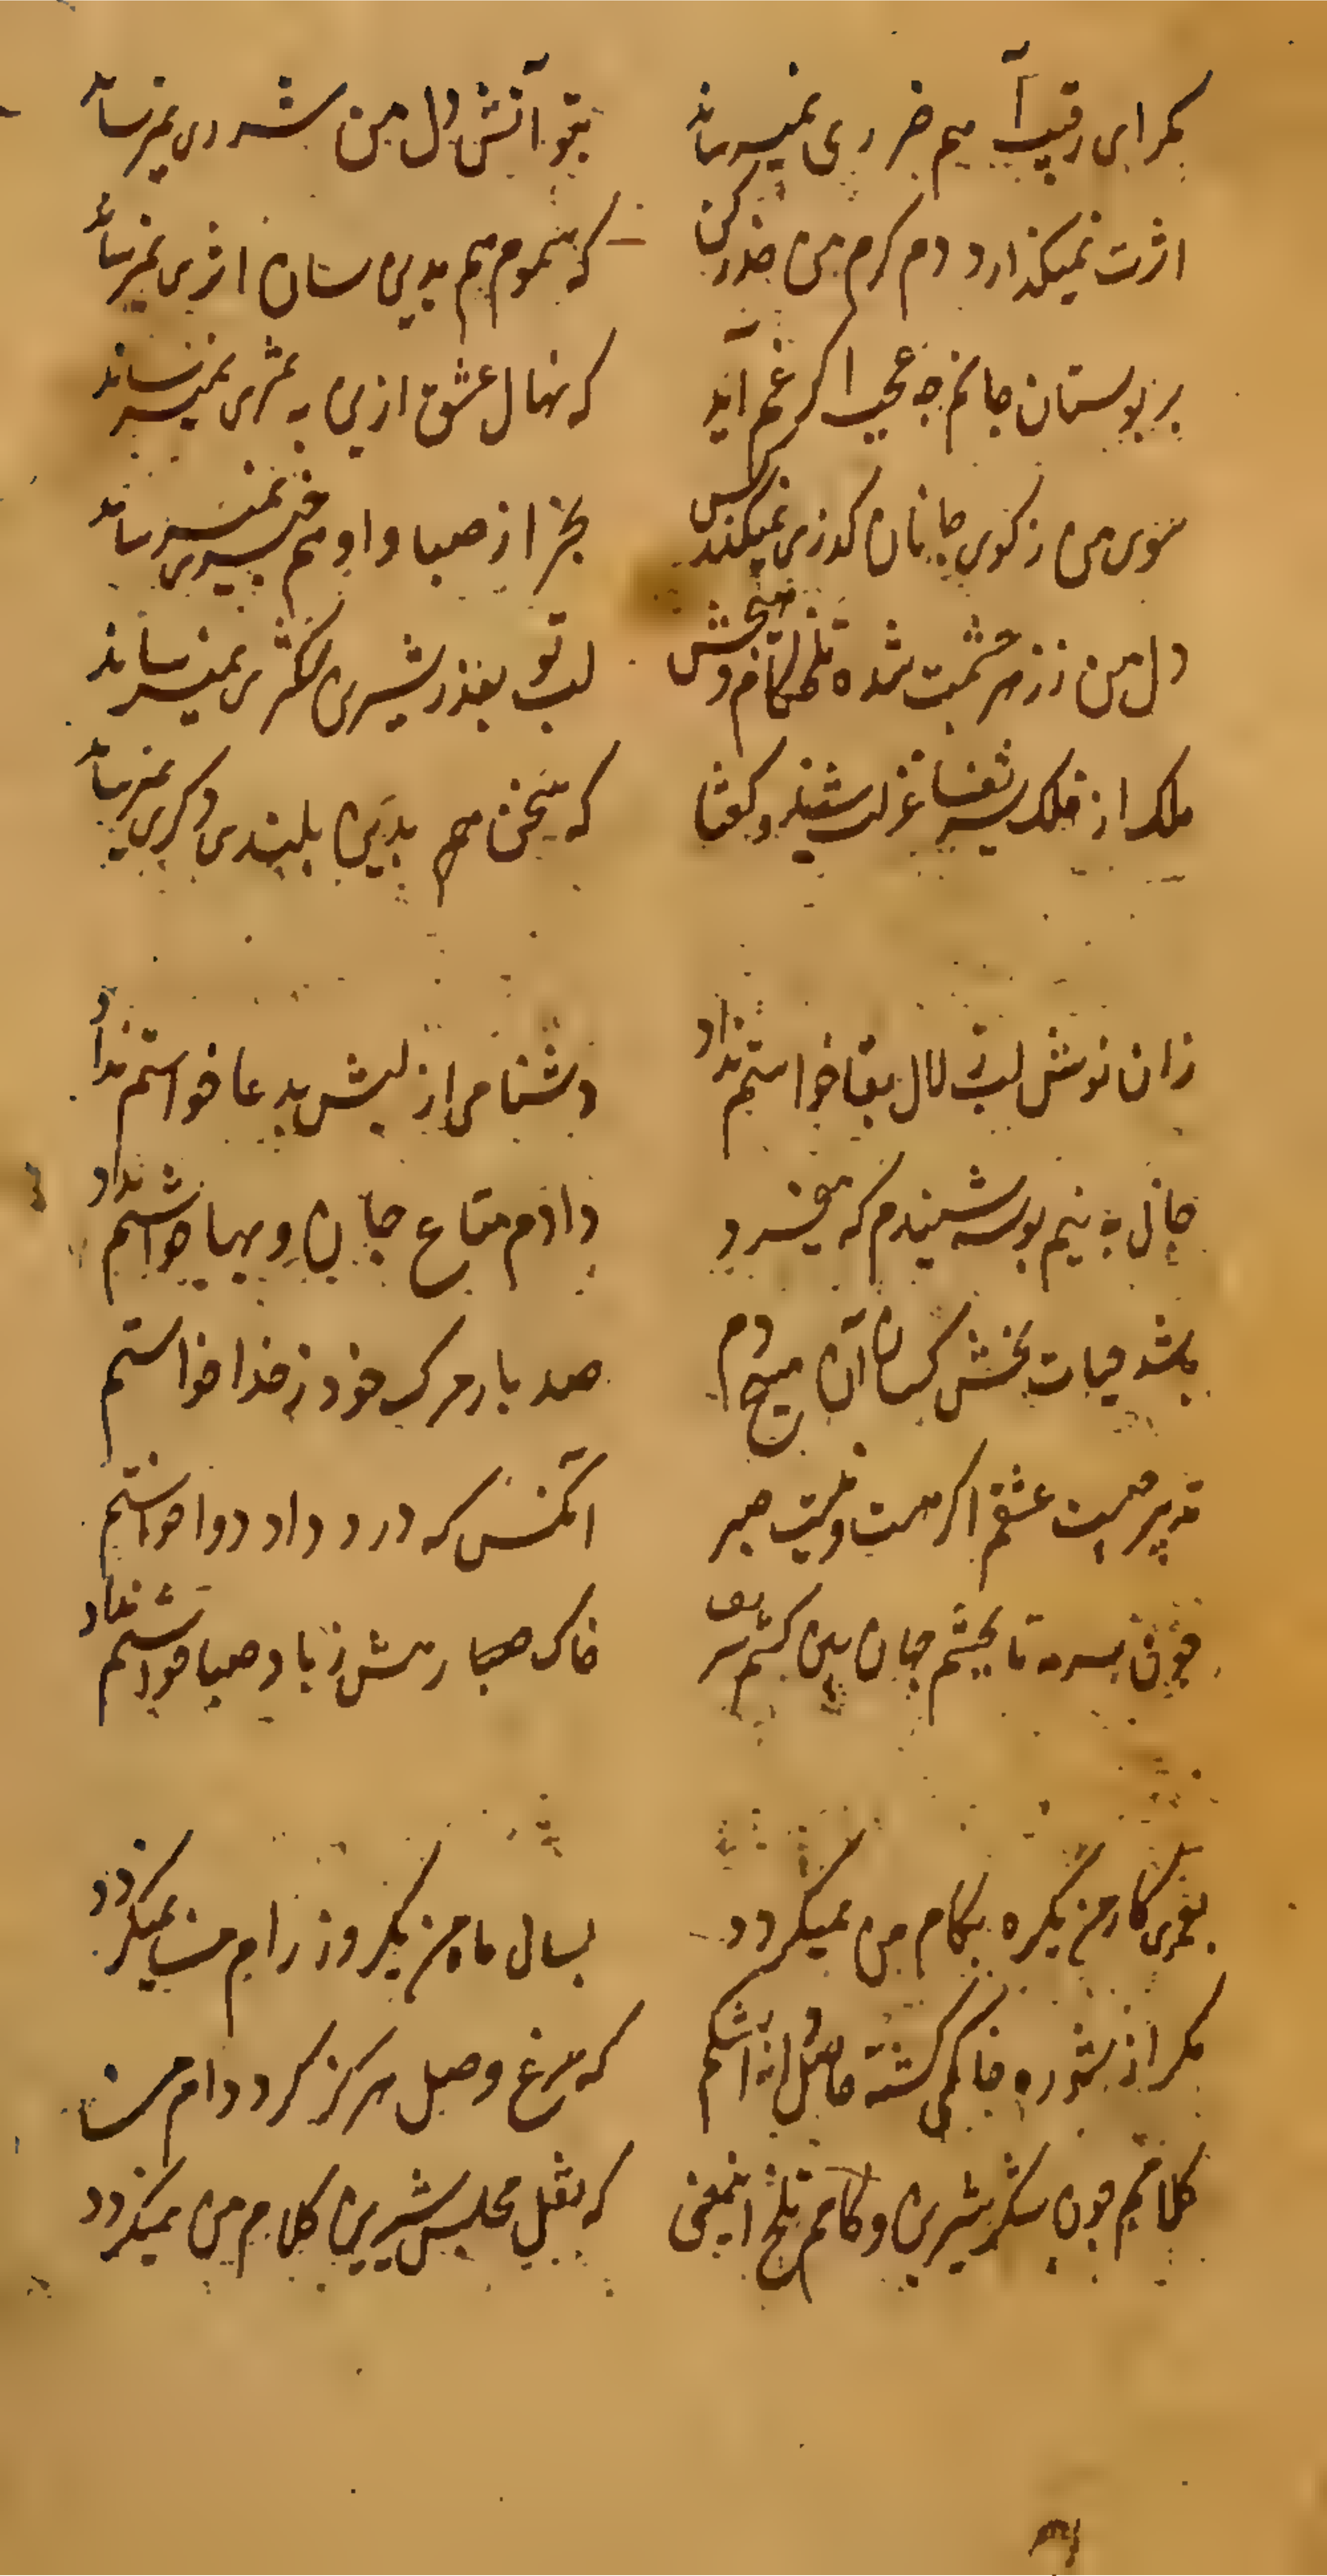 مگر ای رقیب آهم ضرری نمیرساند بتو آتش دل من شرری نمیرساند
اثرت نمیگذارد دم گرم من حذر کن که سموم هم بدین سان اثری نمیرساند
بر بوستان جانم چه عجب اگر غم آید که نهال عشق ازین به ثمری نمیرساند
سوی من ز کوی جانان گذری نمیکند کس بجز از صبا و او هم خبری نمیرساند
دل من ز زهر چشمت شده تلخکام و لب تو بقدر شیرین شکری نمیرساند
ملک از فلک شفائی غزلت شنید و گفتا که سخن هم بدین بلندی دگری نمیرساند
زان نوش لب زلال بقا خواستم نداد دشنامی از لبش بدعا خواستم نداد
جانی به نیم بوسه شنیدم که میخرد دادم متاع جان و بها خواستم نداد
باشد حیات بخش کسان آن مسیح دم صد بار مرگ خود ز خدا خواستم
تدبیر چیست عشقم اگر هست و نیست صبر آنکس که درد داد دوا خواستم
خوفی سرمه تا بچشم جهان بین کشم شرف خاک رهش ز باد صبا خواستم نداد
بعمری کار من یکره بکام من نمیگردد بسال ماه من یکروز رام من نمیگردد
مگر از شوره خاکی گشته حاصل دانه اشکم که مرغ وصل هرگز گرد دام من
کلامم چون شکر شیرین و کامم تلخ ازینمعنی که نقل مجلس شیرین کلام من نمیگردد